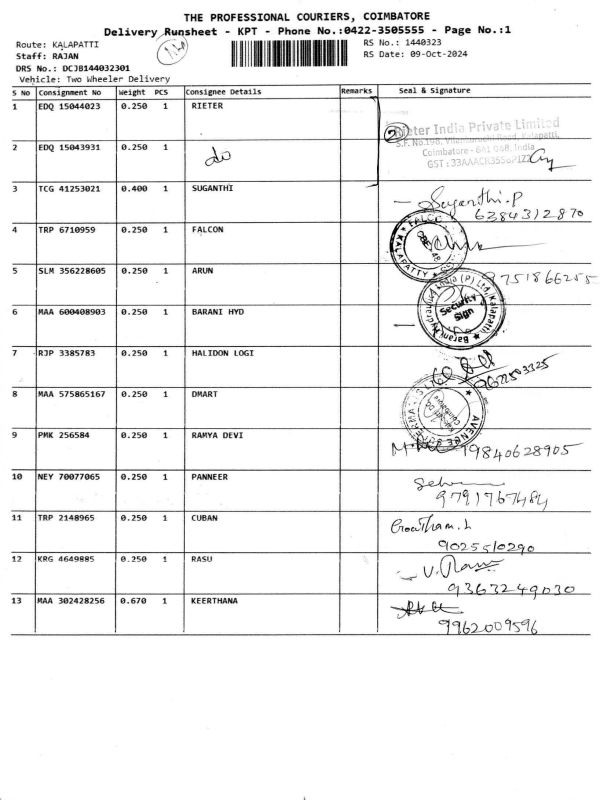 THE PROFESSIONAL COURIERS, COIMBATORE
Delivery Runsheet - KPT - Phone No.:0422-3505555 - Page No.:1
Route: KALAPATTI
Staff: RAJAN
DRS No.: DCJB144032301
Vehicle: Two Wheeler Delivery
RS No.: 1440323
RS Date: 09-Oct-2024
S No Consignment No Weight PCS Consignee Details Remarks Seal & Signature
1 EDQ 15044023 0.250 1 RIETER
Rieter India Private Limited
2 EDQ 15043931 0.250 1 do
Coimbatore - 641 048, India
3 TCG 41253021 0.400 1 SUGANTHI Suganthi.P
6284312870
4 TRP 6710959 0.250 1 FALCON
KALAPATTY
5 SLM 356228605 0.250 1 ARUN 9751866255
6 MAA 600408903 0.250 1 BARANI HYD
Security
Sign
7 RJP 3385783 0.250 1 HALIDON LOGI
8 MAA 575865167 0.250 1 DMART
AVENUE
9 PMK 256584 0.250 1 RAMYA DEVI 9840628905
10 NEY 70077065 0.250 1 PANNEER
9791767484
11 TRP 2148965 0.250 1 CUBAN
9025510290
12 KRG 4649885 0.250 1 RASU
9363249030
13 MAA 302428256 0.670 1 KEERTHANA
9962009596